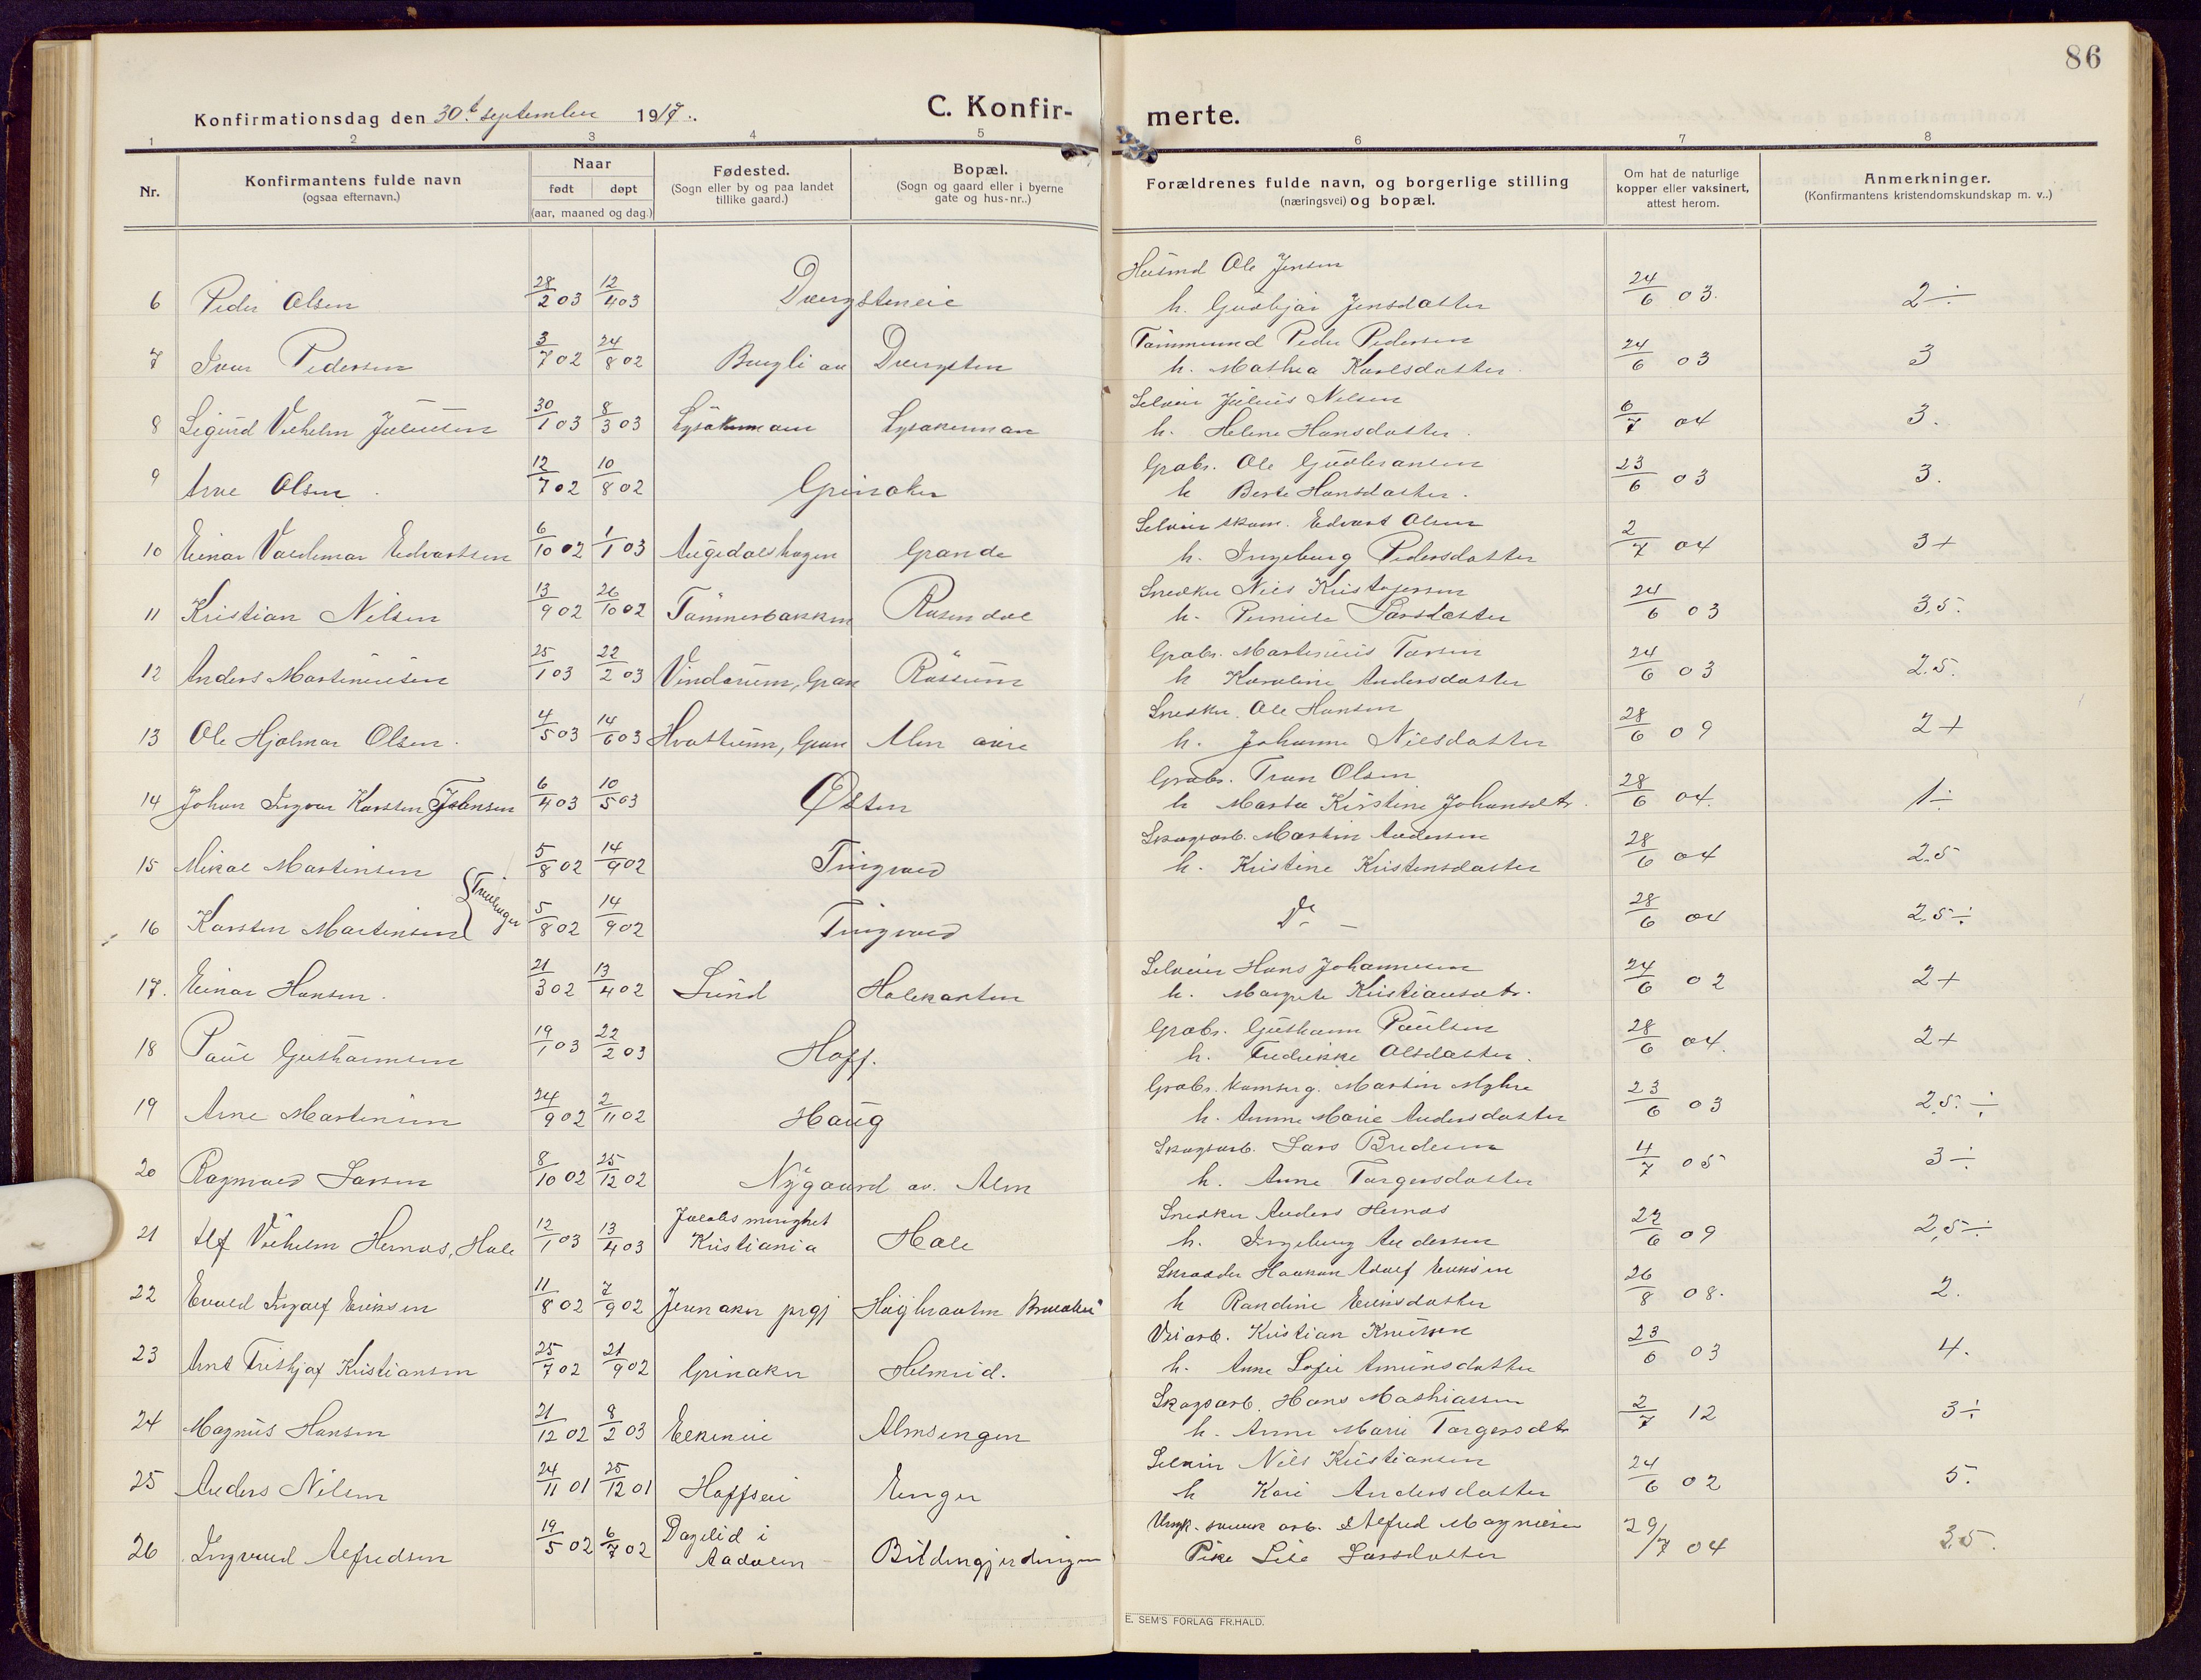 86
Konfirmationsdag den 30t september 1917.
C. Konfir-
merte.
1 2 3 4 5 6 7 8
Nr.
Konfirmantens fulde navn
(ogsaa efternavn.)
Naar
født døpt
(aar, maaned og dag.)
Fødested.
(Sogn eller by og paa landet
tillike gaard.)
Bopæl.
(Sogn og gaard eller i byerne
gate og hus-nr..)
Forældrenes fulde navn, og borgerlige stilling
(næringsvei) og bopæl.
Om hat de naturlige
kopper eller vaksinert,
attest herom.
Anmerkninger.
(Konfirmantens kristendomskundskap m. v..)
Husmd Ole Jensen
6 Peder Olsen 28/2 03 12/4 03 Dvergsteneie h. Gudbjør Jensdatter 24/6 03. 2÷
Tømmermd Peder Pedersen
7 Ivar Pedersen 3/7 02 24/8 02 Bergli av Dvergsten h. Mathea Karlsdatter 24/6 03 3
Selveier Julius Nilsen
8 Sigurd Vilhelm Juliussen 30/1 03 8/3 03 Lysakermoen Lysakermoen h. Helene Hansdatter. 6/7 04 3.
Grabr. Ole Gudbransen
9 Arne Olsen. 12/7 02 10/8 02 Grinaker h Berte Hansdatter. 23/6 03 3.
Selveier skom. Edvart Olsen
10 Einar Valdemar Edvartsen 6/10 02 1/1 03 Augedalshagen Grande h. Ingeborg Pedersdatter 2/7 04 3+
Snedker Nils Kristofersen
11 Kristian Nilsen 13/9 02 26/10 02 Tømmerbakken Rosendal h. Pernille Larsdatter 24/6 03 3,5.
Grabr. Martinius Torsen
12 Anders Martiniusen 25/1 03 22/2 03 Vindorum, Gran Røssum h Karoline Andersdatter 24/6 03 2.5.
Snedker. Ole Hansen
13 Ole Hjalmar Olsen. 4/5 03 14/6 03 Hvattum, Gran Alm øvre h. Johanne Nilsdatter 28/6 09 2+
Grabr. Tron Olsen
14 Johan Ingvar Karsten 6/4 03 10/5 03 Østen h Marta Kirstine Johansdtr. 28/6 04. 1÷
Skogsarb. Martin Andersen
15 Mikal Martinsen 5/8 02 14/9 02 Tingvold h. Kristine Kristensdatter 28/6 04 2.5
Tvillinger
16 Karsten Martinsen 5/8 02 14/9 02 Tingvold Do — 28/6 04 2,5÷
Selveier Hans Johannesen
17. Einar Hansen. 21/3 02 13/4 02 Lund Holekarten h. Margrete Kristiansdtr. 24/6 02 2+
Grabr. Guthorm Paulsen
18 Paul Guthormsen 19/1 03 22/2 03 Hoff. h. Fredrikke Olsdatter. 28/6 04. 2+
Grabr. komserg. Martin Myhre
19 Arne Martinsen 24/9 02 2/11 02 Haug h. Anne Marie Andersdatter 23/6 03 2,5. ÷
Skogsarb. Lars Bredesen
20 Ragnvald Larsen 8/10 02 25/12 02 Nygaard av. Alm h. Anne Torgersdatter 4/7 05 3÷
Jacobs menighet Snedker Anders Hernæs
21 Alf Vilhelm Hernæs, Hole 12/1 03 13/4 03 Kristiania Hole h. Ingeborg Andersen 22/6 09 2,5÷
Skrædder Haakon Adolf Eriksen
22 Evald Ingolf Eriksen 11/8 02 7/9 02 Jevnaker prgj h Randine Eriksdatter 26/8 08. 2.
Veiarb. Kristian Knutsen
23 Arnt Frithjof Kristiansen 25/7 02 21/9 02 Grinaker Helmeid. h. Anne Sofie Amunsdatter 23/6 03 4.
Skogsarb. Hans Mathiassen
24 Magnus Hansen 21/12 02 8/2 03 Elkeneie Almsengen h. Anne Marie Torgersdtr 2/7 12 3÷
Selveier Nils Kristiansen
25 Anders Nilsen 24/11 01 25/12 01 Hoffseie Enger h Kari Andersdatter 24/6 02 5.
Dagelid i Ungk. arb. Alfred Magnusen
26 Ingvald Alfredsen 19/5 02 6/7 02 Aadalen Bildengjerdingen Pike Lise Larsdatter 29/7 04 3,5.
E. SEM'S FORLAG FR.HALD.